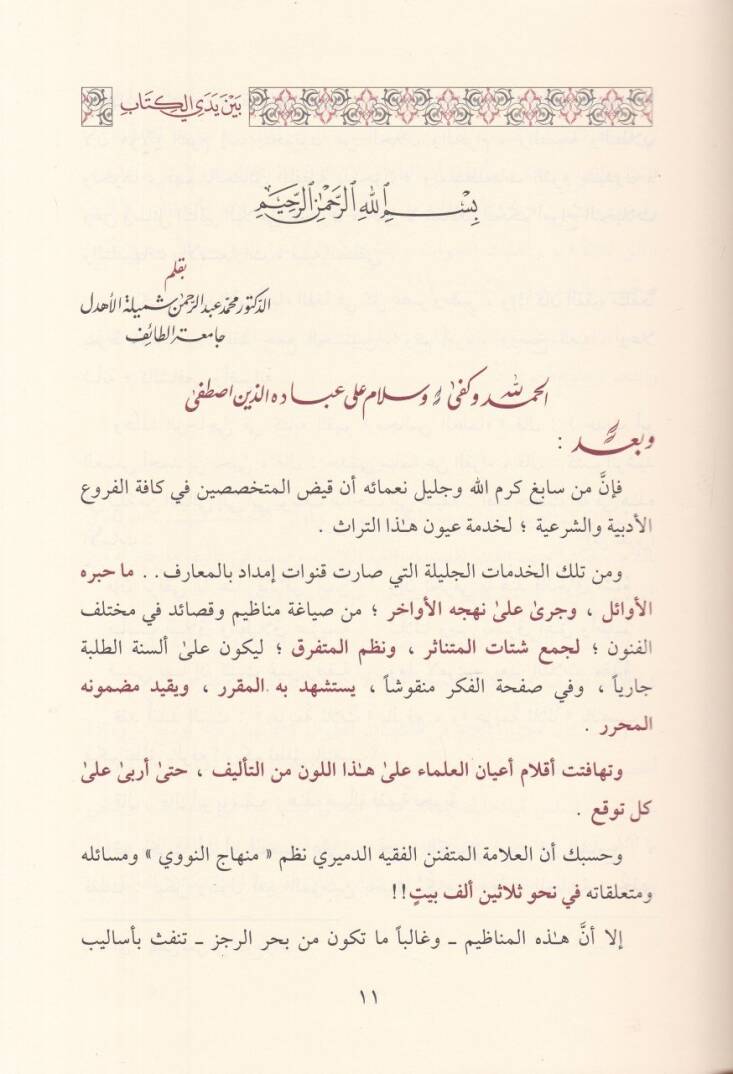 بَيْنَ يَدَيِ الكِتَابِ
بِسْمِ اللهِ الرَّحْمٰنِ الرَّحِيْمِ
بقلم
الدكتور محمد عبد الرحمن شميلة الأهدل
جامعة الطائف
الحمد لله وكفىٰ ، وسلام على عباده الذين اصطفىٰ
وبعد :
فإنَّ من سابغ كرم الله وجليل نعمائه أن قيض المتخصصين في كافة الفروع
الأدبية والشرعية ؛ لخدمة عيون هـٰذا التراث .
ومن تلك الخدمات الجليلة التي صارت قنوات إمداد بالمعارف . . ما حبره
الأوائل ، وجرىٰ علىٰ نهجه الأواخر ؛ من صياغة مناظيم وقصائد في مختلف
الفنون ؛ لجمع شتات المتناثر ، ونظم المتفرق ؛ ليكون علىٰ ألسنة الطلبة
جارياً ، وفي صفحة الفكر منقوشاً ، يستشهد به المقرر ، ويقيد مضمونه
المحرر .
وتهافتت أقلام أعيان العلماء علىٰ هـٰذا اللون من التأليف ، حتىٰ أربىٰ علىٰ
كل توقع .
وحسبك أن العلامة المتفنن الفقيه الدميري نظم « منهاج النووي » ومسائله
ومتعلقاته في نحو ثلاثين ألف بيتٍ!!
إلا أنَّ هـٰذه المناظيم ـ وغالباً ما تكون من بحر الرجز ـ تنفث بأساليب
١١